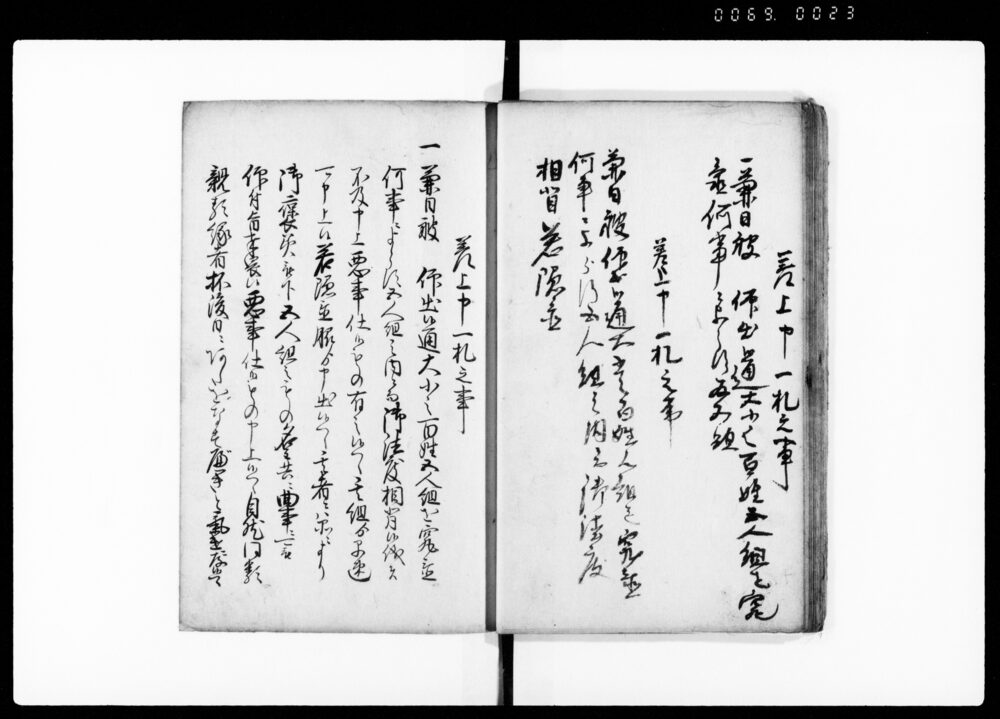 0069. 0023
差上申一札之事
一兼日被 仰出候通大小之百姓五人組を究
置何事ニよらす五人組
差上申一札之事
兼日被 仰出候通大小之百姓五人組を究置
何事ニよらす五人組之内ニ而御法度
相背若隠置
差上申一札之事
一兼日被 仰出候通大小之百姓五人組を究置
何事ニよらす五人組之内ニ而御法度相背候儀は
不及申上悪事仕候もの有之候ハヽ其組ゟ早速
可申上候若隠置脇ゟ申出候ハヽ其者ニ品により
御褒美被下五人組之もの名主共ニ曲事ニ可被
仰付旨奉畏候悪事仕候もの申上候ハヽ自然同類
親類縁者杯後日ニあたをなすへき気遣